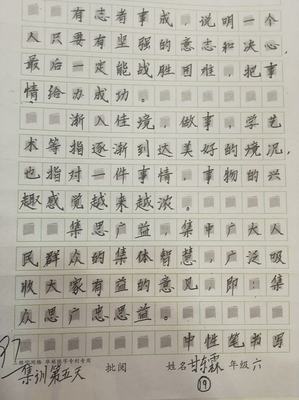 有志者事成，说明一个
人只要有坚强的意志和决心，
最后一定能战胜困难，把事
情给办成功。
渐入佳境，做事，学艺
术等指逐渐到达美好的境况，
也指对一件事情，事物的兴
趣感觉越来越浓。
集思广益，集中广大人
民群众的集体智慧，广泛吸
收大家有益的意见，即：集
众思广思思益。
中性笔书写
97
集训第五天 批阅 姓名 甘东霖 年级 六
19